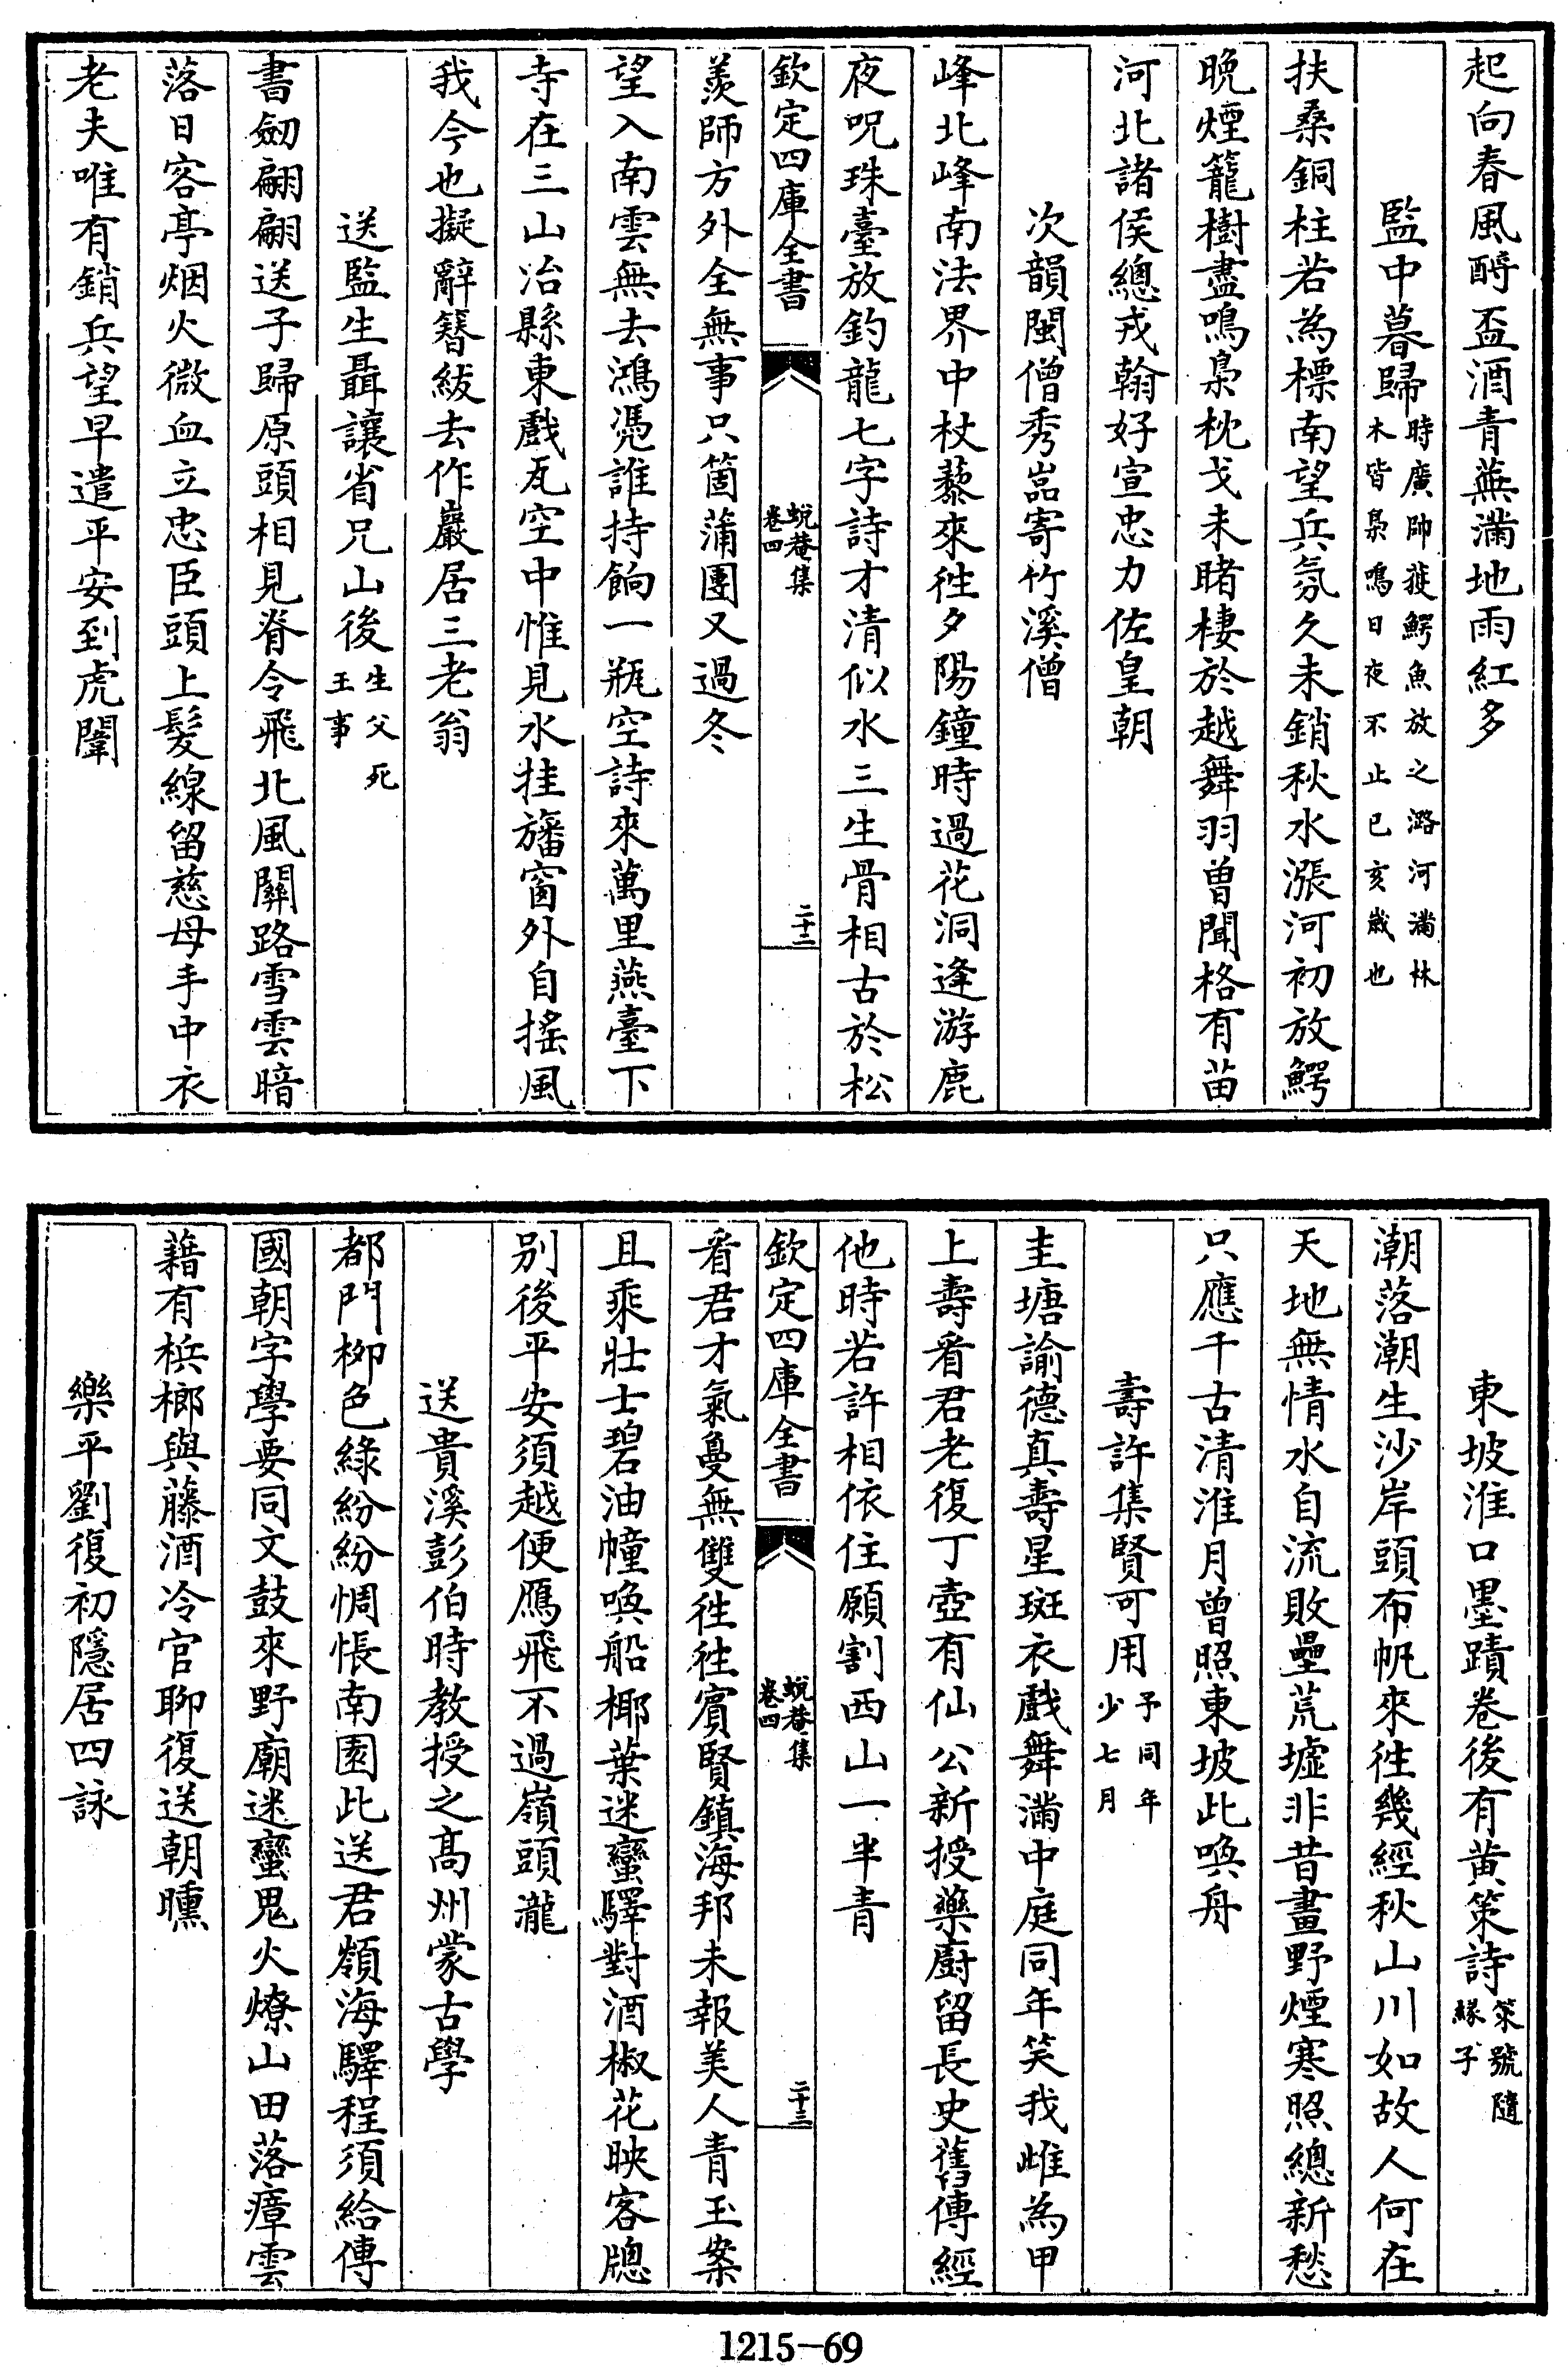 起向春風酹盃酒青蕪滿地雨紅多
監中暮歸時廣帥獲鰐魚放之潞河滿林木皆梟鳴日夜不止已亥歲也
扶桑銅柱若為標南望兵氛久未銷秋水漲河初放鰐
晚煙籠樹盡鳴梟枕戈未睹棲於越舞羽曽聞格有苗
河北諸侯總戎翰好宣忠力佐皇朝
次韻閩僧秀嵓寄竹溪僧
峰北峰南法界中杖藜來徃夕陽鐘時過花洞逢游鹿
夜呪珠臺放釣龍七字詩才清似水三生骨相古於松
欽定四庫全書
蛻菴集
卷四
二十二
羨師方外全無事只箇蒲團又過冬
望入南雲無去鴻凴誰持餉一瓶空詩來萬里燕臺下
寺在三山冶縣東戲瓦空中惟見水挂旛窗外自搖風
我今也擬辭簪紱去作巖居三老翁
送監生聶讓省兄山後生父死王事
書劒翩翩送子歸原頭相見脊令飛北風關路雪雲暗
落日客亭烟火微血立忠臣頭上髮線留慈母手中衣
老夫唯有銷兵望早遣平安到虎闈
東坡淮口墨蹟卷後有黄䇿詩䇿號隨緣子
潮落潮生沙岸頭布帆來徃幾經秋山川如故人何在
天地無情水自流敗壘荒墟非昔畫野煙寒照總新愁
只應千古清淮月曽照東坡此喚舟
壽許集賢可用予同年少七月
圭塘諭德真壽星斑衣戲舞滿中庭同年笑我雌為甲
上壽看君老復丁壺有仙公新授藥廚留長史舊傳經
他時若許相依住願割西山一半青
欽定四庫全書
蛻菴集
卷四
二十三
看君才氣敻無雙徃徃賓賢鎮海邦未報美人青玉案
且乘壯士碧油幢喚船椰葉迷蠻驛對酒椒花映客牕
别後平安須越便鴈飛不過嶺頭瀧
送貴溪彭伯時教授之高州蒙古學
都門栁色綠紛紛惆悵南園此送君嶺海驛程須給傳
國朝字學要同文鼓來野廟迷蠻鬼火燎山田落瘴雲
藉有梹榔與藤酒冷官聊復送朝曛
樂平劉復初隱居四詠
1215-69